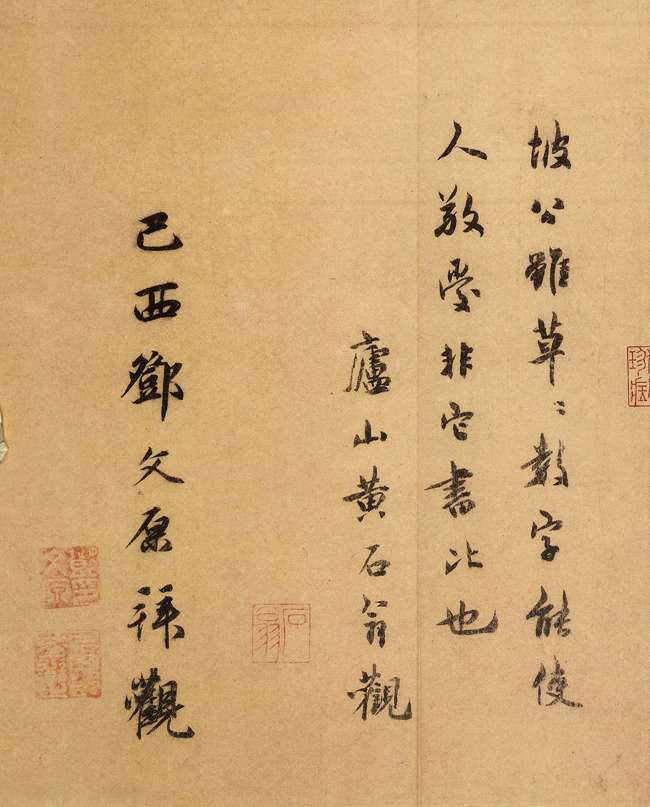 坡公雖草〻數字能使
人敬愛非它書比也
廬山黃石翁觀
石翁
巴西鄧文原拜觀